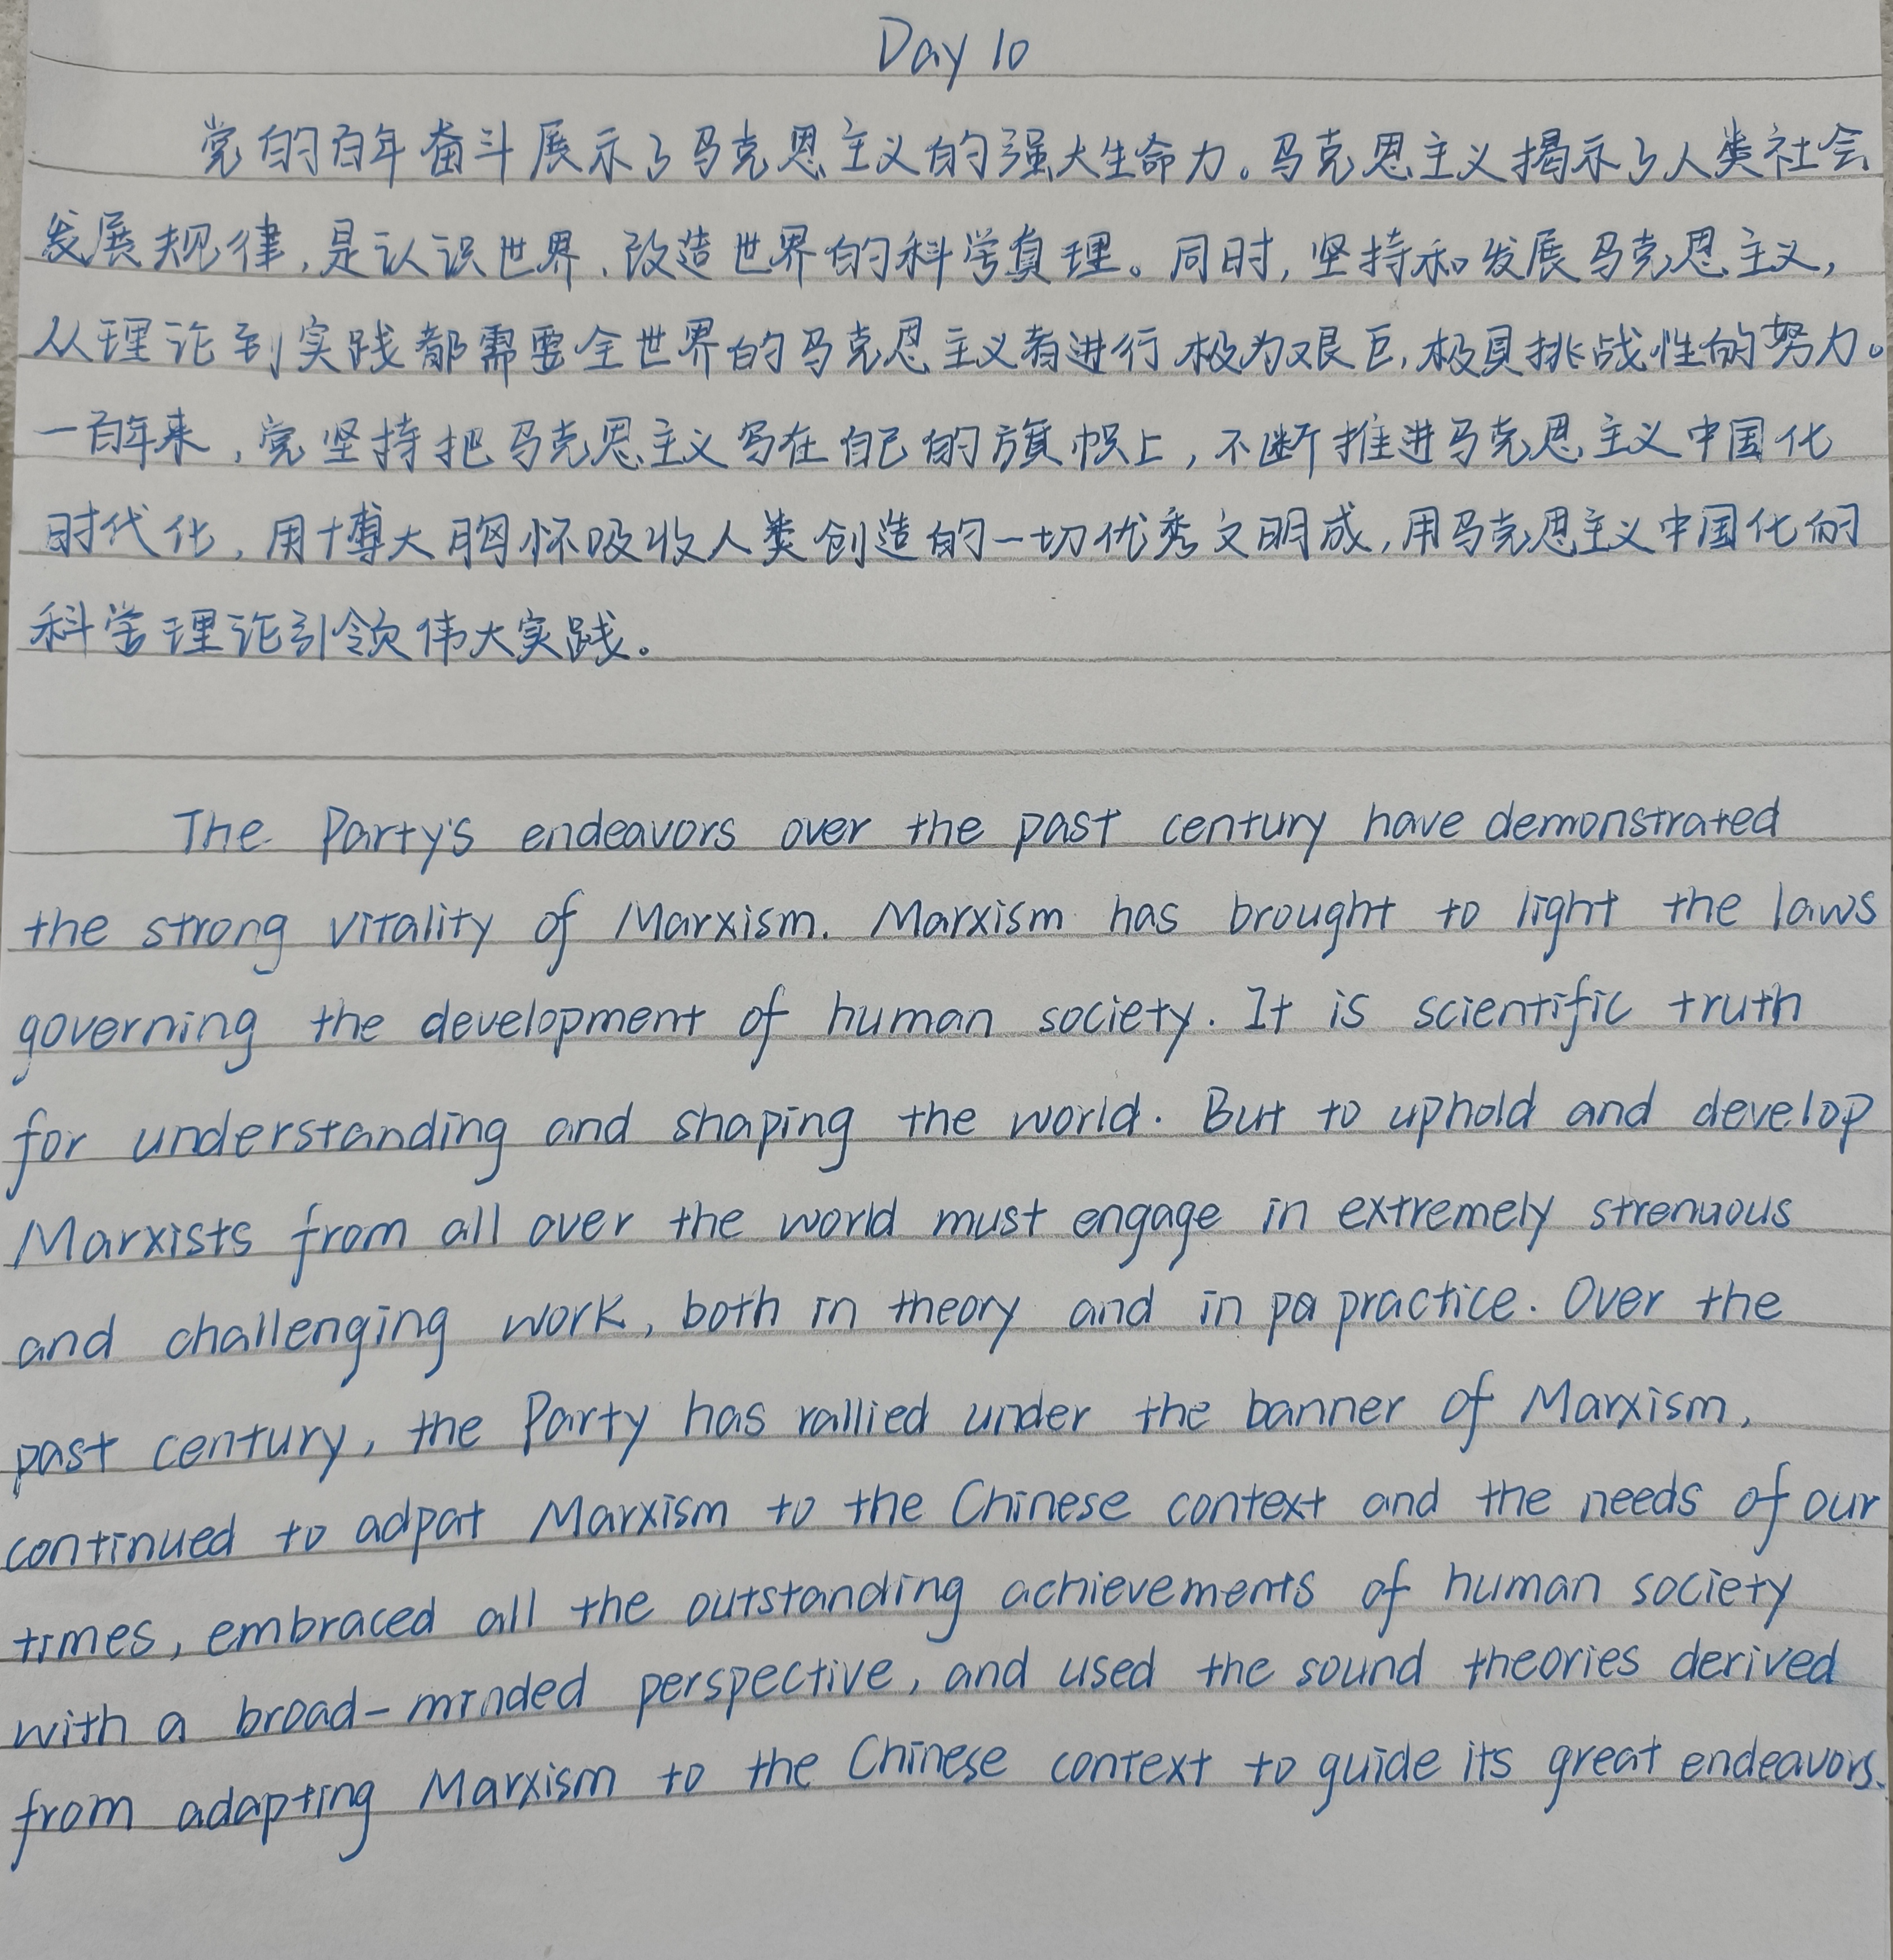 Day 10
党的百年奋斗展示了马克思主义的强大生命力。马克思主义揭示了人类社会
发展规律,是认识世界、改造世界的科学真理。同时,坚持和发展马克思主义,
从理论到实践都需要全世界的马克思主义者进行极为艰巨,极具挑战性的努力。
一百年来,党坚持把马克思主义写在自己的旗帜上,不断推进马克思主义中国化
时代化,用博大胸怀吸收人类创造的一切优秀文明成,用马克思主义中国化的
科学理论引领伟大实践。
The Party's endeavors over the past century have demonstrated
the strong vitality of Marxism. Marxism has brought to light the laws
governing the development of human society. It is scientific truth
for understanding and shaping the world. But to uphold and develop
Marxists from all over the world must engage in extremely strenuous
and challenging work, both in theory and in pa practice. Over the
past century, the Party has rallied under the banner of Marxism,
continued to adpat Marxism to the Chinese context and the needs of our
times, embraced all the outstanding achievements of human society
with a broad-minded perspective, and used the sound theories derived
from adapting Marxism to the Chinese context to guide its great endeavors.